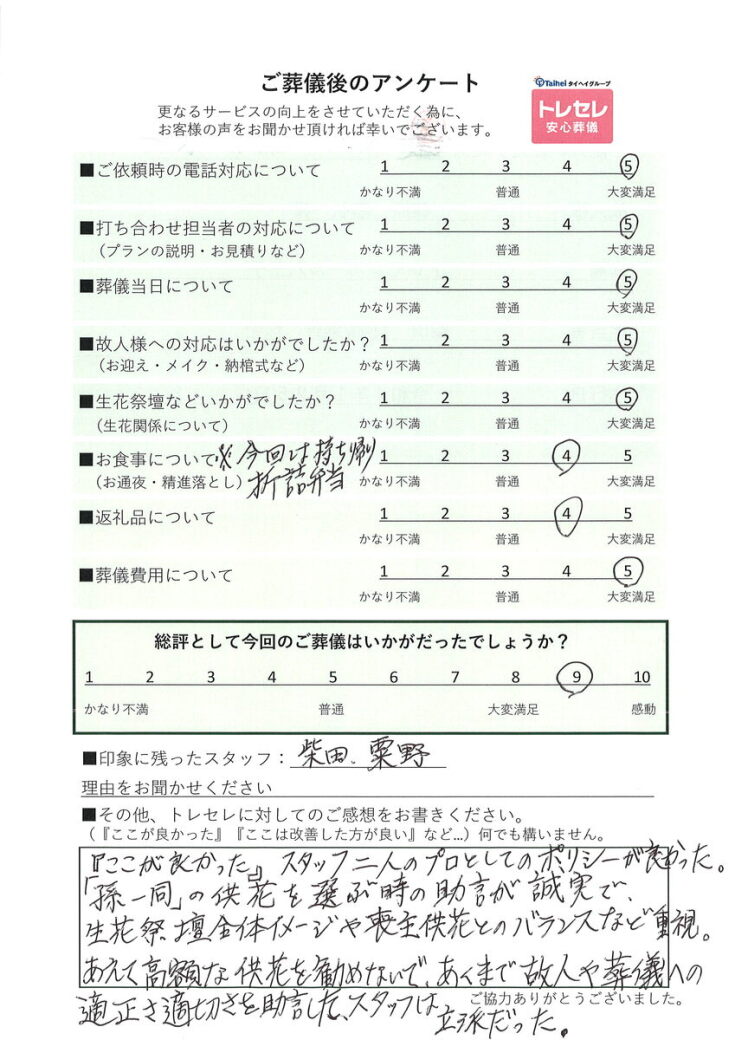 ご葬儀後のアンケート
Taihei タイヘイグループ
トレセレ
安心葬儀
更なるサービスの向上をさせていただく為に、
お客様の声をお聞かせ頂ければ幸いでございます。
■ご依頼時の電話対応について 1 2 3 4 5
かなり不満 普通 大変満足
■打ち合わせ担当者の対応について 1 2 3 4 5
（プランの説明・お見積りなど） かなり不満 普通 大変満足
■葬儀当日について 1 2 3 4 5
かなり不満 普通 大変満足
■故人様への対応はいかがでしたか？ 1 2 3 4 5
（お迎え・メイク・納棺式など） かなり不満 普通 大変満足
■生花祭壇などいかがでしたか？ 1 2 3 4 5
（生花関係について） かなり不満 普通 大変満足
■お食事について ※今回は持ち帰り 1 2 3 4 5
（お通夜・精進落とし） 折詰弁当 かなり不満 普通 大変満足
■返礼品について 1 2 3 4 5
かなり不満 普通 大変満足
■葬儀費用について 1 2 3 4 5
かなり不満 普通 大変満足
総評として今回のご葬儀はいかがだったでしょうか？
1 2 3 4 5 6 7 8 9 10
かなり不満 普通 大変満足 感動
■印象に残ったスタッフ： 柴田、粟野
理由をお聞かせください
■その他、トレセレに対してのご感想をお書きください。
（『ここが良かった』『ここは改善した方が良い』など…）何でも構いません。
『ここが良かった』スタッフ二人のプロとしてのポリシーが良かった。
「孫一同」の供花を選ぶ時の助言が誠実で、
生花祭壇全体イメージや喪主供花とのバランスなど重視。
あえて高額な供花を勧めないで、あくまで故人や葬儀への
適正さ適切さを助言した、スタッフは立派だった。
ご協力ありがとうございました。